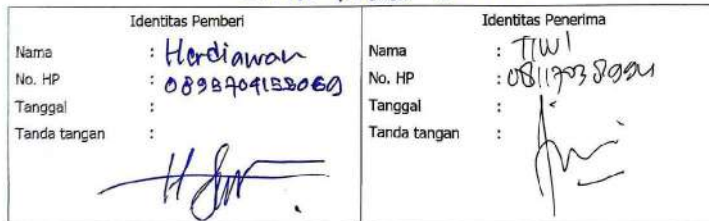 Identitas Pemberi
Nama : Herdiawan
No. HP : 0895704158069
Tanggal :
Tanda tangan :
Identitas Penerima
Nama : TIWI
No. HP :
Tanggal :
Tanda tangan :